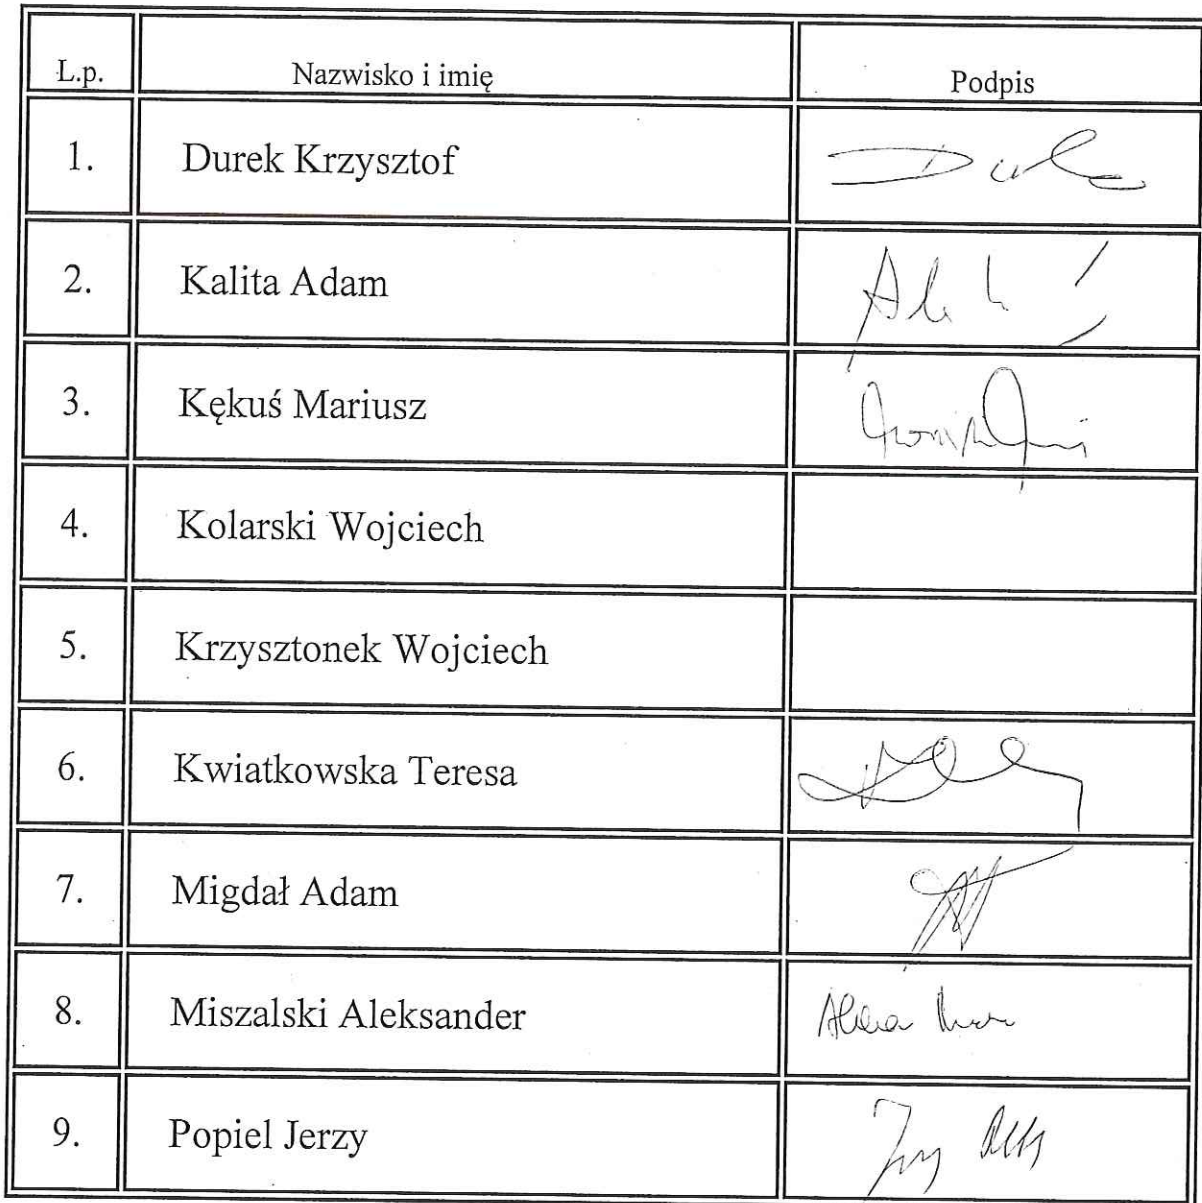 L.p. Nazwisko i imię Podpis
1. Durek Krzysztof
2. Kalita Adam
3. Kękuś Mariusz
4. Kolarski Wojciech
5. Krzysztonek Wojciech
6. Kwiatkowska Teresa
7. Migdał Adam
8. Miszalski Aleksander
9. Popiel Jerzy